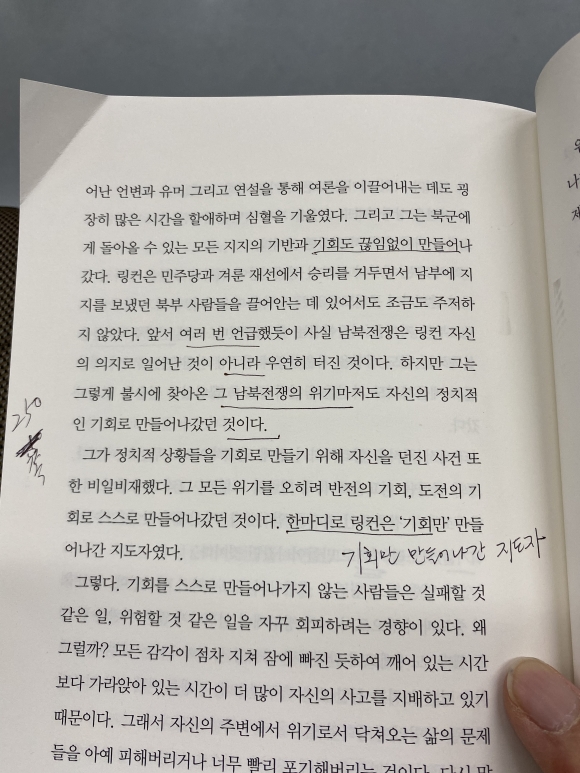 어난 언변과 유머 그리고 연설을 통해 여론을 이끌어내는 데도 굉
장히 많은 시간을 할애하며 심혈을 기울였다. 그리고 그는 북군에
게 돌아올 수 있는 모든 지지의 기반과 기회도 끊임없이 만들어나
갔다. 링컨은 민주당과 겨룬 재선에서 승리를 거두면서 남부에 지
지를 보냈던 북부 사람들을 끌어안는 데 있어서도 조금도 주저하
지 않았다. 앞서 여러 번 언급했듯이 사실 남북전쟁은 링컨 자신
의 의지로 일어난 것이 아니라 우연히 터진 것이다. 하지만 그는
그렇게 불시에 찾아온 그 남북전쟁의 위기마저도 자신의 정치적
인 기회로 만들어나갔던 것이다.
그가 정치적 상황들을 기회로 만들기 위해 자신을 던진 사건 또
한 비일비재했다. 그 모든 위기를 오히려 반전의 기회, 도전의 기
회로 스스로 만들어나갔던 것이다. 한마디로 링컨은 '기회만' 만들
어나간 지도자였다.
기회만 만들어나간 지도자
그렇다. 기회를 스스로 만들어나가지 않는 사람들은 실패할 것
같은 일, 위험할 것 같은 일을 자꾸 회피하려는 경향이 있다. 왜
그럴까? 모든 감각이 점차 지쳐 잠에 빠진 듯하여 깨어 있는 시간
보다 가라앉아 있는 시간이 더 많이 자신의 사고를 지배하고 있기
때문이다. 그래서 자신의 주변에서 위기로서 닥쳐오는 삶의 문제
들을 아예 피해버리거나 너무 빨리 포기해버리는 것이다. 다시 말